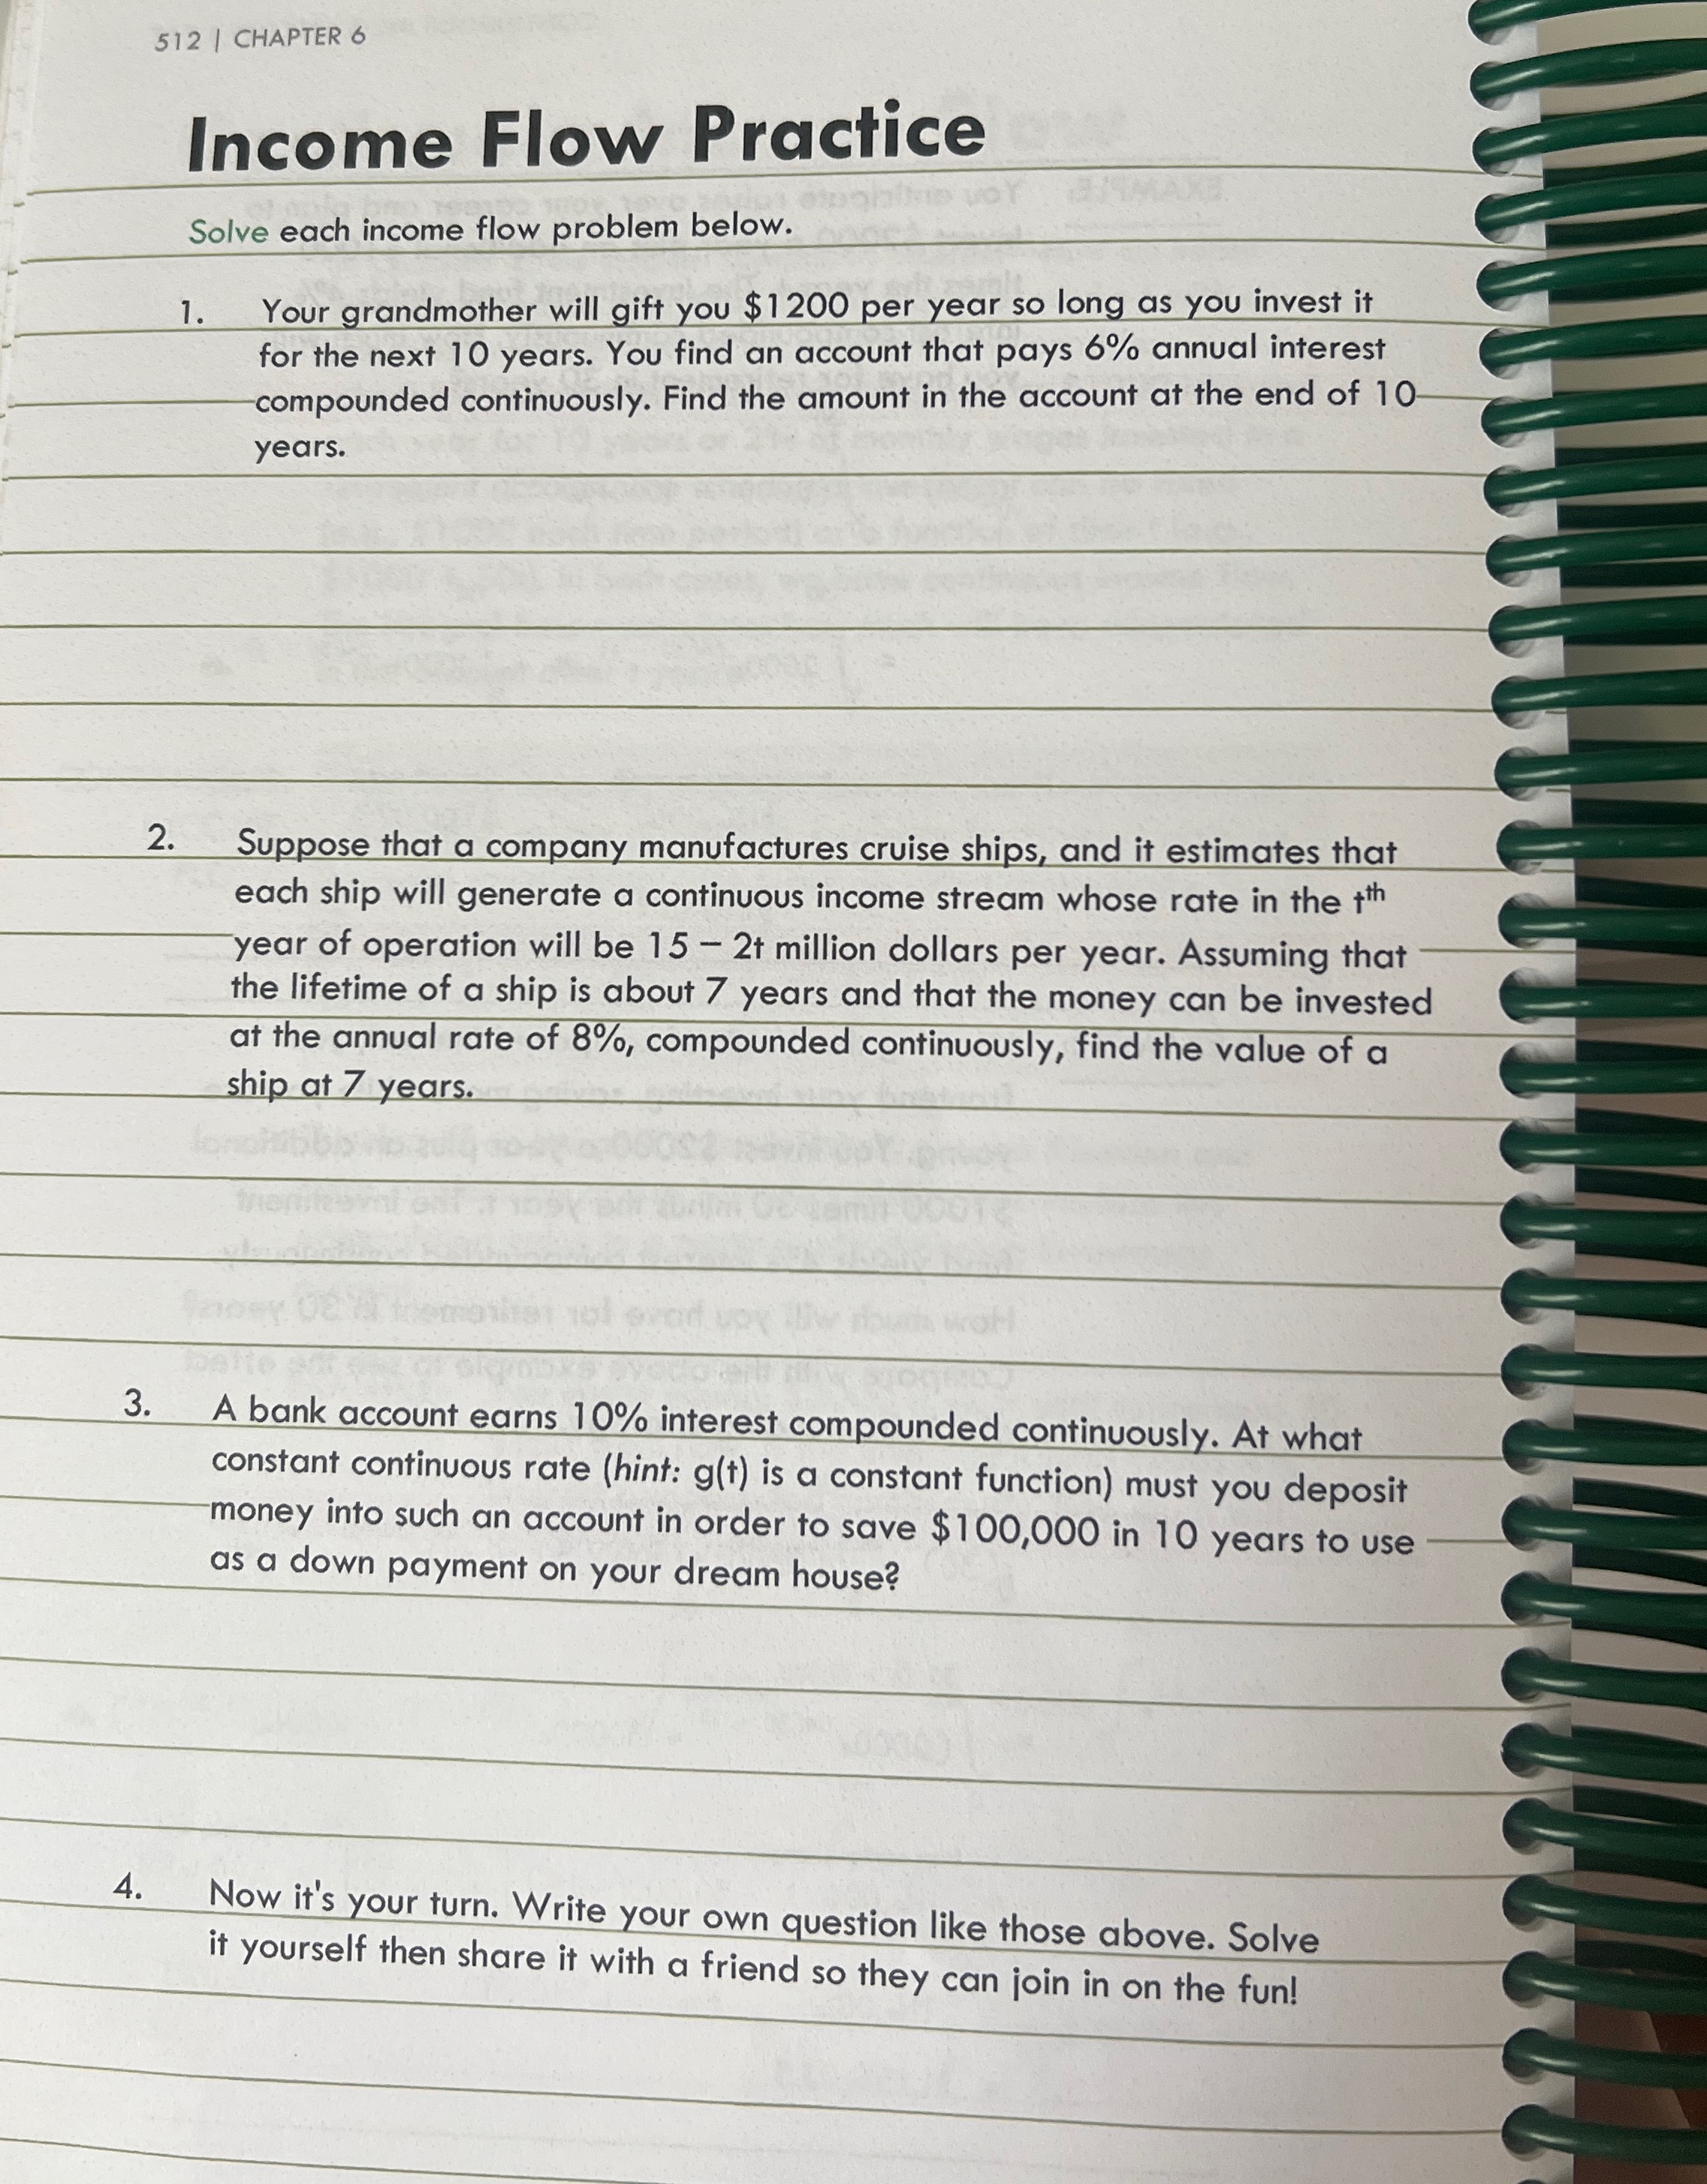 512 | CHAPTER 6
Income Flow Practice
Solve each income flow problem below.
1. Your grandmother will gift you $1200 per year so long as you invest it
for the next 10 years. You find an account that pays 6% annual interest
compounded continuously. Find the amount in the account at the end of 10
years.
2. Suppose that a company manufactures cruise ships, and it estimates that
each ship will generate a continuous income stream whose rate in the tth
year of operation will be 15 – 2t million dollars per year. Assuming that
the lifetime of a ship is about 7 years and that the money can be invested
at the annual rate of 8%, compounded continuously, find the value of a
ship at 7 years.
3. A bank account earns 10% interest compounded continuously. At what
constant continuous rate (hint: g(t) is a constant function) must you deposit
money into such an account in order to save $100,000 in 10 years to use
as a down payment on your dream house?
4. Now it's your turn. Write your own question like those above. Solve
it yourself then share it with a friend so they can join in on the fun!